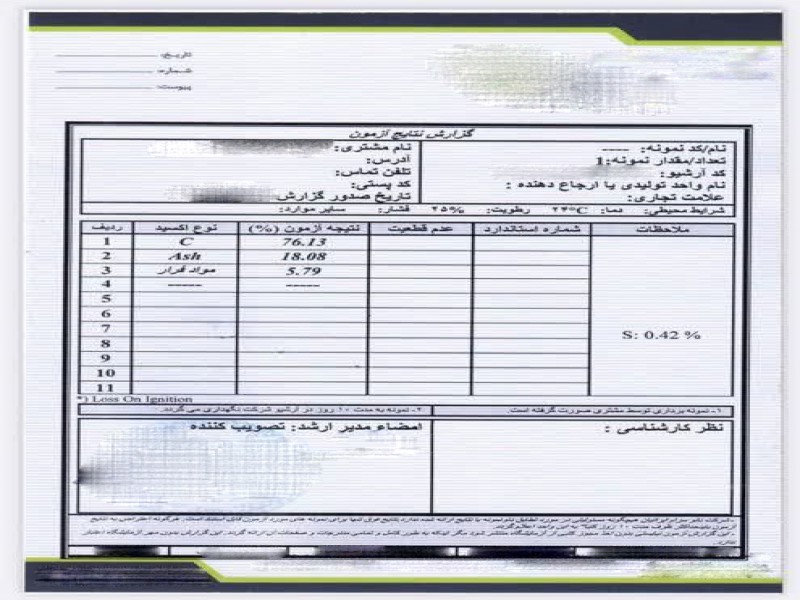 تاریخ:
شماره:
پیوست:
گزارش نتایج آزمون
نام/کد نمونه: ----
تعداد/مقدار نمونه:1
کد آرشیو:
نام واحد تولیدی یا ارجاع دهنده :
علامت تجاری:
نام مشتری:
آدرس:
تلفن تماس:
کد پستی:
تاریخ صدور گزارش
شرایط محیطی: دما: ۲۴°C رطوبت: ۲۵% فشار: سایر موارد:
ردیف نوع اکسید نتیجه آزمون (%) عدم قطعیت شماره استاندارد ملاحظات
1 C 76.13
2 Ash 18.08
3 مواد فرار 5.79
4 ----- -----
5
6
7
8
9
10
11
S: 0.42 %
*) Loss On Ignition
۱- نمونه برداری توسط مشتری صورت گرفته است.
۲- نمونه به مدت ۱۰ روز در آرشیو شرکت نگهداری می گردد.
نظر کارشناسی :
امضاء مدیر ارشد: تصویب کننده